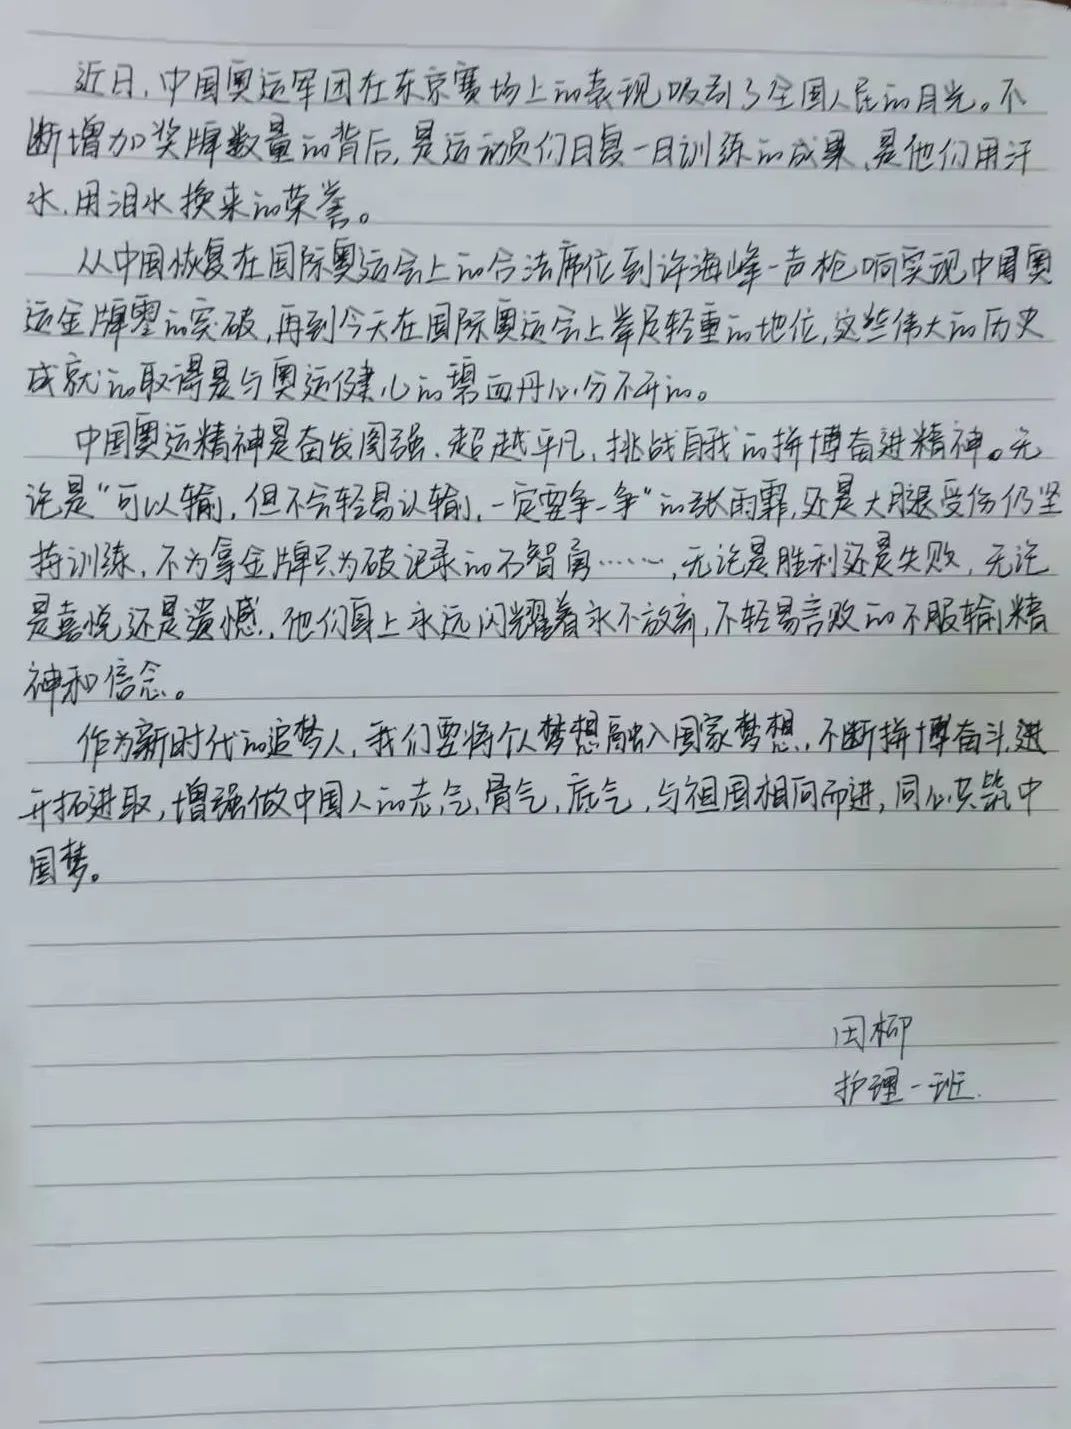 近日,中国奥运军团在东京赛场上的表现吸引了全国人民的目光。不
断增加奖牌数量的背后,是运动员们日复一日训练的成果,是他们用汗
水、用泪水换来的荣誉。
从中国恢复在国际奥运会上的合法席位到许海峰一声枪响实现中国奥
运金牌零的突破,再到今天在国际奥运会上举足轻重的地位,这些伟大的历史
成就的取得是与奥运健儿的碧血丹心分不开的。
中国奥运精神是奋发图强、超越平凡、挑战自我的拼博奋进精神。无
论是“可以输,但不会轻易认输,一定要争一争”的张雨霏,还是大腿受伤仍坚
持训练,不为拿金牌只为破记录的石智勇……,无论是胜利还是失败,无论
是喜悦还是遗憾,他们身上永远闪耀着永不放弃,不轻易言败的不服输精
神和信念。
作为新时代的追梦人,我们要将个人梦想融入国家梦想,不断拼博奋斗,进
开拓进取,增强做中国人的志气,骨气,底气,与祖国相向而进,同心共筑中
国梦。
田柳
护理一班.